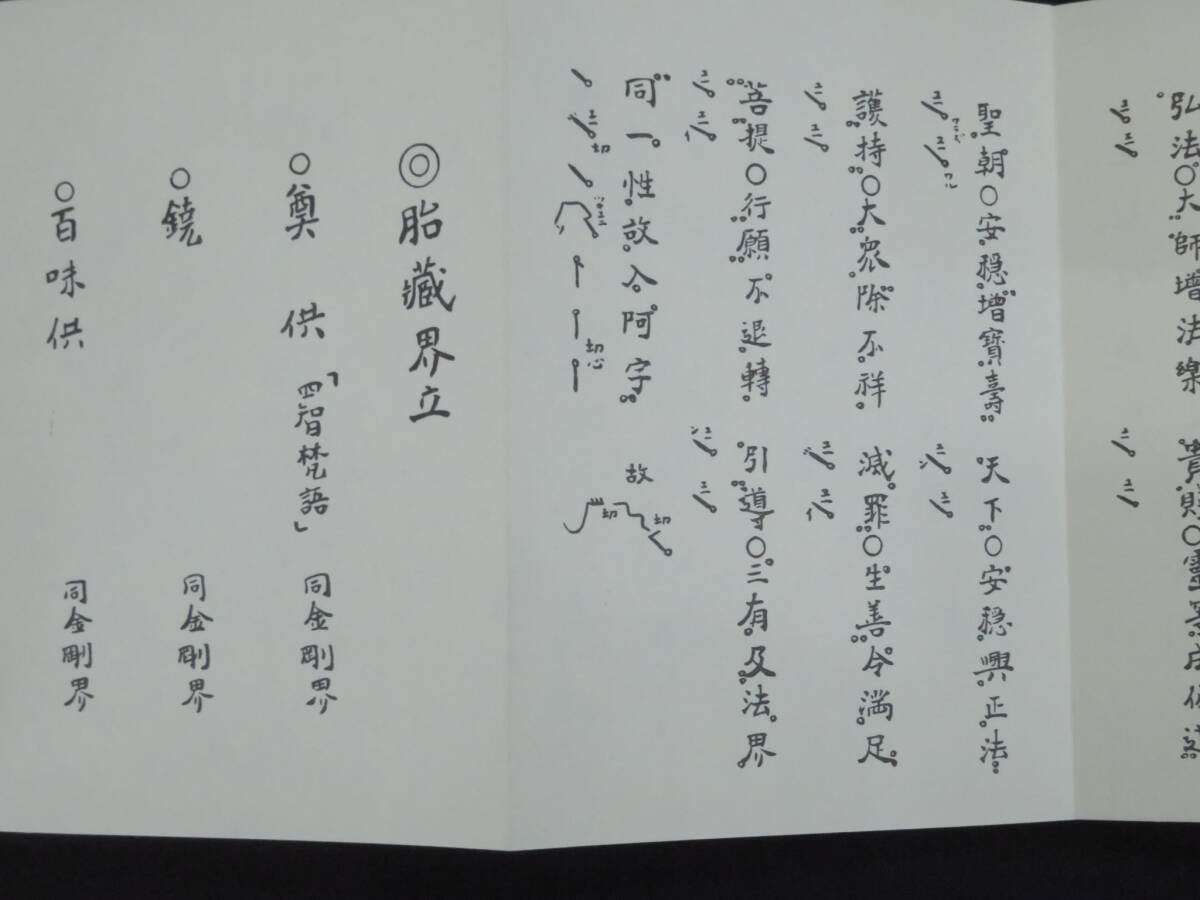 弘法○大師增法樂　貴賤○靈等成佛道
聖朝○安穩增寶壽　天下○安穩興正法
護持○大衆除不祥　滅罪○生善令満足
菩提○行願不退轉　引導○三有及法界
同一性故入阿字　故
◎胎藏界立
○奠供「四智梵語」　同金剛界
○鐃　同金剛界
○百味供　同金剛界